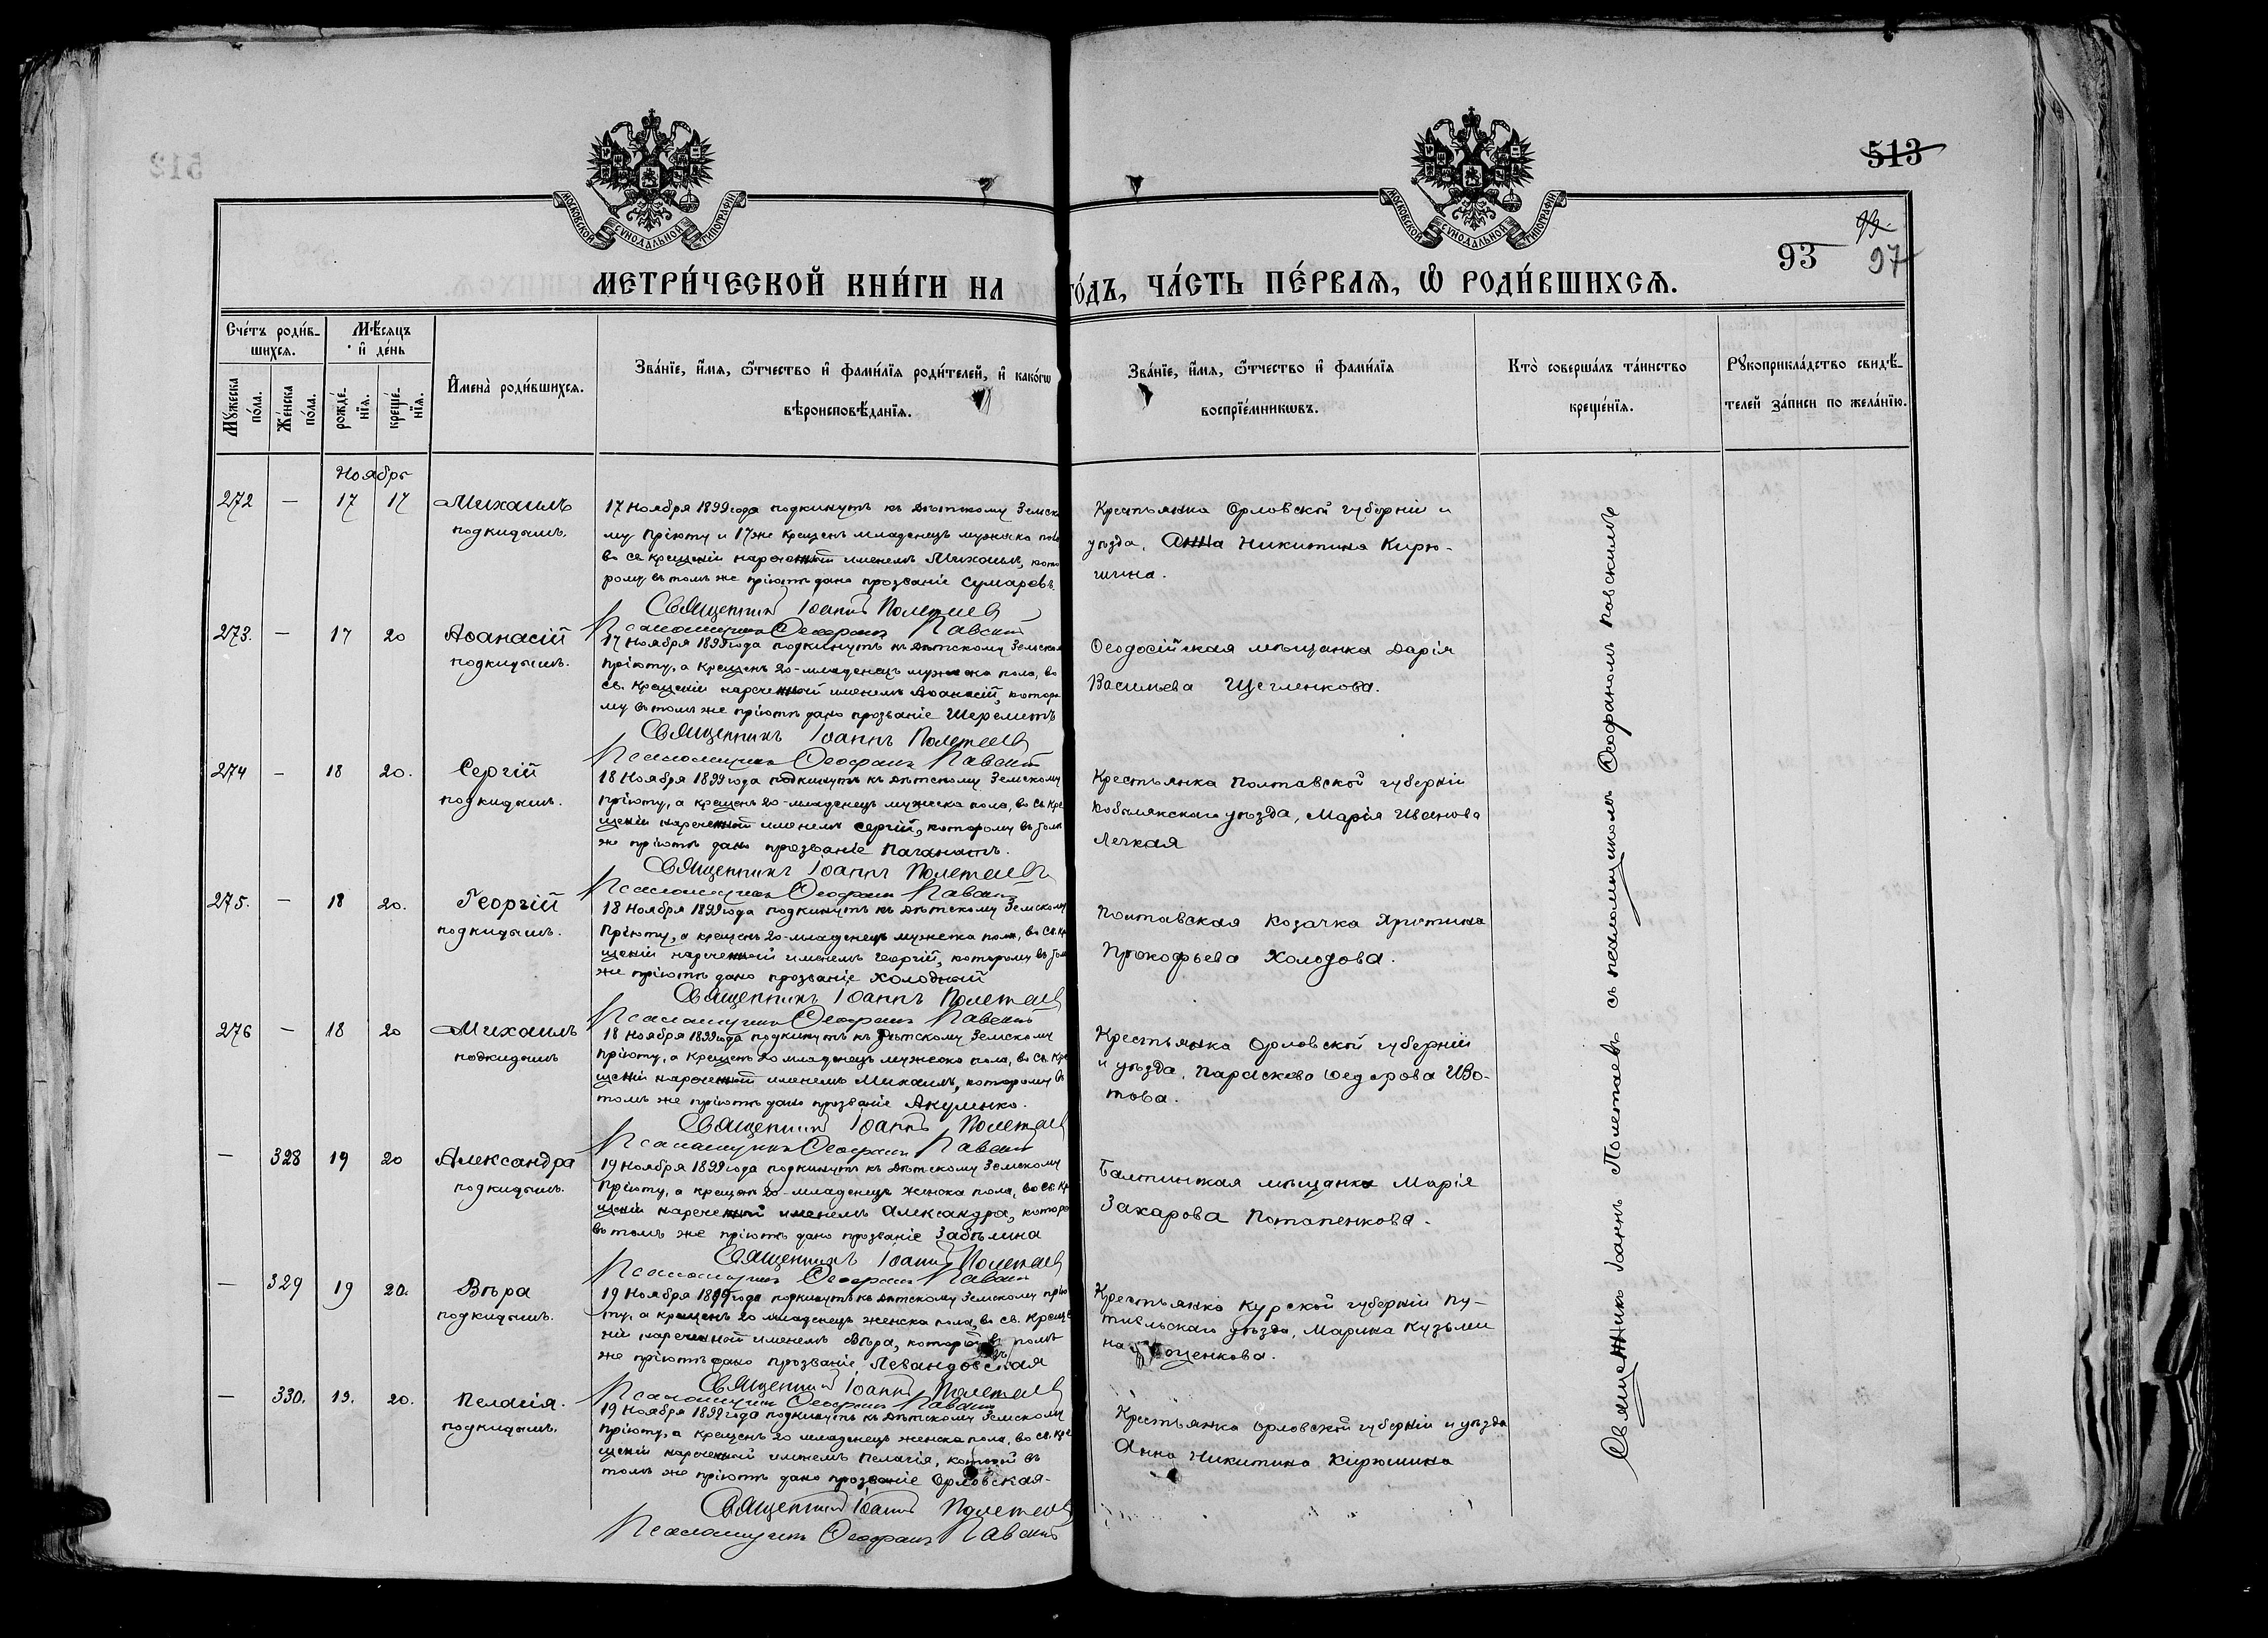 513
93
97
МЕТРИ́ЧЕСКОЙ КНИ́ГИ НА ГО́ДЪ, ЧА́СТЬ ПЕ́РВАѦ, Ѡ РОДИ́ВШИХСѦ.
МОСКОВСКОЙ СѴНОДАЛЬНОЙ ТИПОГРАФІИ
МОСКОВСКОЙ СѴНОДАЛЬНОЙ ТИПОГРАФІИ
Сче́тъ роди́в-
шихсѧ.
Мꙋ́жеска по́ла.
Же́нска по́ла.
Мѣ́сѧцъ
и҆ де́нь
рожде́-
нїѧ.
креще́-
нїѧ.
И҆мена̀ роди́вшихсѧ.
Зва́нїе, и҆́мѧ, ѻ҆́тчество и҆ фами́лїѧ роди́телей, и҆ како́гѡ
вѣроисповѣ́данїѧ.
Зва́нїе, и҆́мѧ, ѻ҆́тчество и҆ фами́лїѧ
воспрїе́мникѡвъ.
Кто̀ соверша́лъ та́инство
креще́нїѧ.
Рꙋкоприкла́дство свидѣ́-
телей за́писи по жела́нїю.
Ноябрь
272 — 17 17 Михаилъ
подкидышъ.
17 Ноября 1899 года подкинутъ къ Дѣтскому Земско
му Пріюту и 17 же крещенъ младенецъ мужска пола
во св крещеніи нареченный именемъ Михаилъ, кото
рому въ томъ же пріютѣ дано прозваніе Сумаровъ.
Священникъ Іоаннъ Полетаевъ
Псаломщикъ Ѳеофанъ Павскій
Крестьянка Орловской губерніи и
уѣзда, Анна Никитина Кирю-
шина.
273. — 17 20 Аѳанасій
подкидышъ.
17 Ноября 1899 года подкинутъ къ Дѣтскому Земском
Пріюту, а крещенъ 20-младенецъ мужска пола, во
св. крещеніи нареченный именемъ Аѳанасій, которо
му въ томъ же пріютѣ дано прозваніе Шереметъ
Священникъ Іоаннъ Полетаевъ
Псаломщикъ Ѳеофанъ Павскій
Ѳеодосійская мѣщанка Дарія
Васильева Щегленкова.
274 — 18 20. Сергій
подкидышъ.
18 Ноября 1899 года подкинутъ къ Дѣтскому Земскому
Пріюту, а крещенъ 20-младенецъ мужска пола, во св. кре
щеніи нареченный именемъ Сергій, которому въ томъ
же пріютѣ дано прозваніе Паганатъ.
Священникъ Іоаннъ Полетаевъ
Псаломщикъ Ѳеофанъ Павскій
Крестьянка Полтавской губерніи
Кобылякскаго уѣзда, Марія Иванова
Легкая
275. — 18 20. Георгій
подкидышъ.
18 Ноября 1899 года подкинутъ къ Дѣтскому Земскому
Пріюту, а крещенъ 20-младенецъ мужска пола, во св. кре
щеніи нареченный именемъ Георгій, которому въ том
же пріютѣ дано прозваніе Холодный
Священникъ Іоаннъ Полетаевъ
Псаломщикъ Ѳеофанъ Павскій
Полтавская Козачка Христина
Прокофьева Холодова.
276 — 18 20 Михаилъ
подкидышъ
18 Ноября 1899 года подкинутъ къ Дѣтскому Земскому
Пріюту, а крещенъ 20 младенецъ мужска пола, во св. кре
щеніи нареченный именемъ Михаилъ, которому въ
томъ же пріютѣ дано прозваніе Акуленко.
Священникъ Іоаннъ Полетаевъ
Псаломщикъ Ѳеофанъ Павскій
Крестьянка Орловской губерніи
и уѣзда, Параскева Ѳедорова Изо-
това.
— 328 19 20 Александра
подкидышъ.
19 Ноября 1899 года подкинутъ къ Дѣтскому Земскому
Пріюту, а крещенъ 20-младенецъ женска пола, во св. кр
щеніи нареченный именемъ Александра, которо
въ томъ же пріютѣ дано прозваніе Забѣлина
Священникъ Іоаннъ Полетаевъ
Псаломщикъ Ѳеофанъ Павскій
Балтинская мѣщанка Марія
Захарова Потапенкова.
— 329 19 20. Вѣра
подкидышъ.
19 Ноября 1899 года подкинутъ къ Дѣтскому Земскому прію
ту, а крещенъ 20 младенецъ женска пола, во св. креще
ніи нареченной именемъ Вѣра, которой въ томъ
же пріютѣ дано прозваніе Левандовская
Священникъ Іоаннъ Полетаевъ
Псаломщикъ Ѳеофанъ Павскій
Крестьянка Курской губерніи Пу-
тивльскаго уѣзда, Марина Кузьми
на
— 330. 19. 20. Пелагія.
подкидышъ.
19 Ноября 1899 года подкинутъ къ Дѣтскому Земскому
Пріюту, а крещенъ 20 младенецъ женска пола, во св. кре
щеніи нареченный именемъ Пелагія, которой въ
томъ же пріютѣ дано прозваніе Орловская.
Священникъ Іоаннъ Полетаевъ
Псаломщикъ Ѳеофанъ Павскій
Крестьянка Орловской губерніи и уѣзда
Анна Никитина Кирюшина
Священникъ Іоаннъ Полетаевъ съ псаломщикомъ Ѳеофаномъ Павскимъ